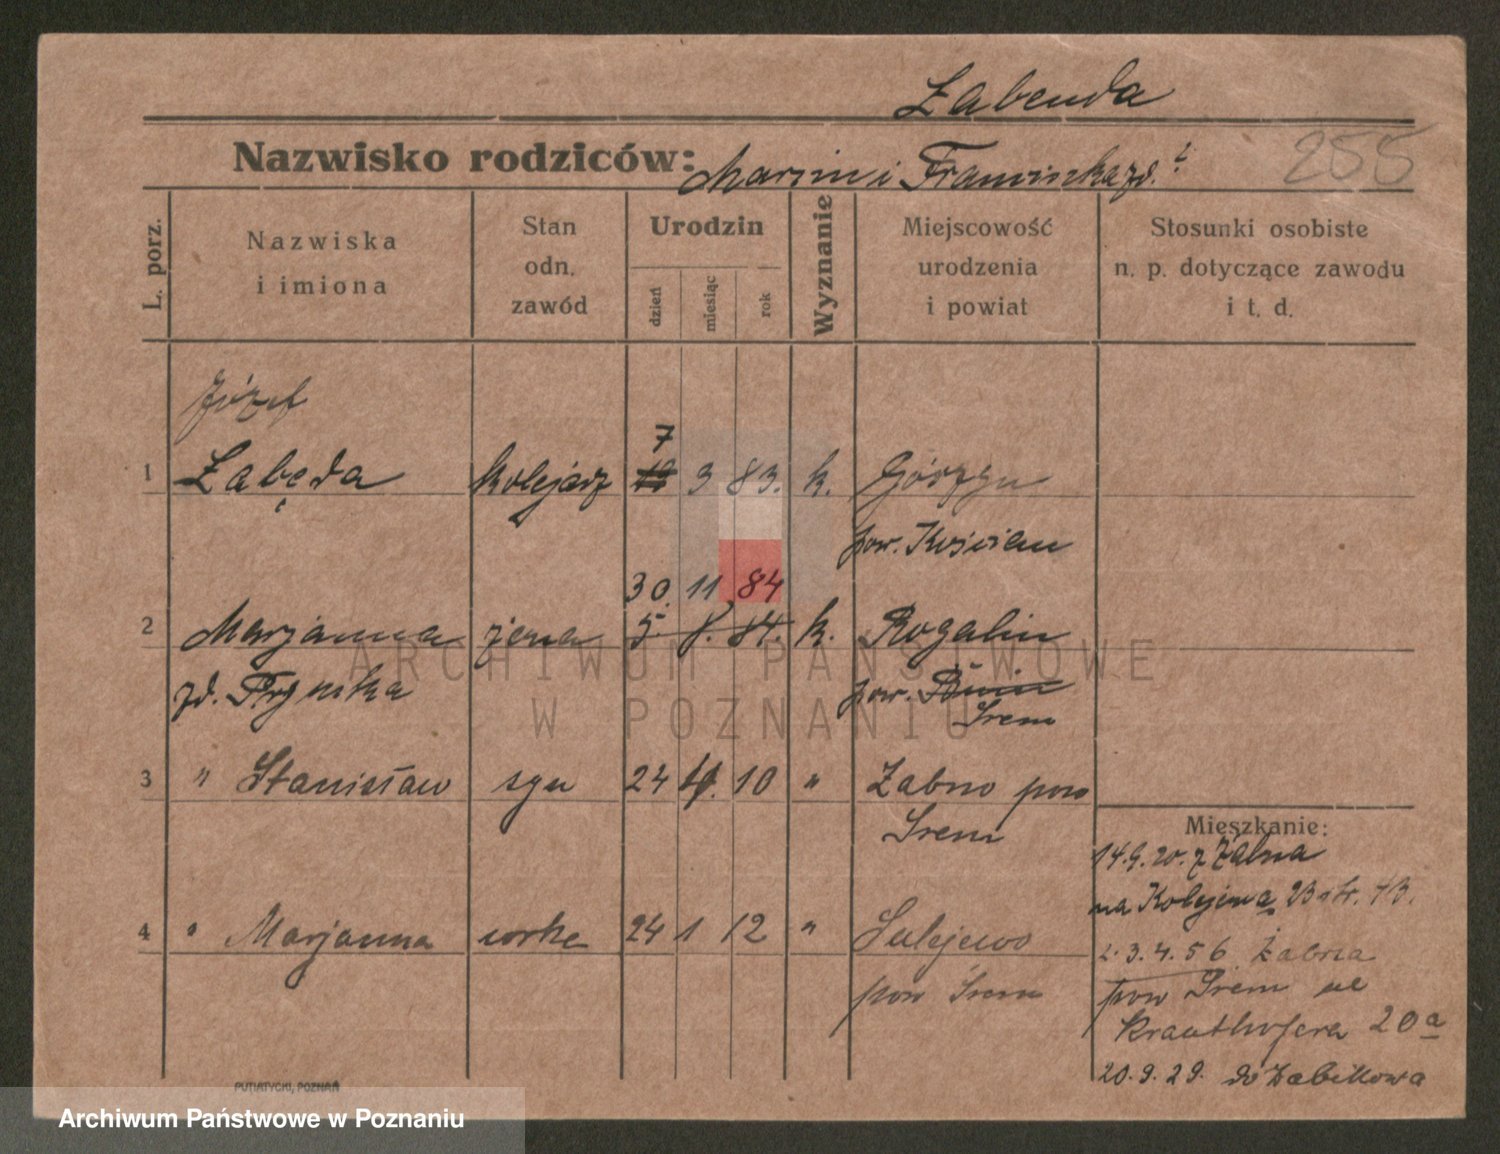 Łabenda
255
Nazwisko rodziców: Marcin i Franciszka zd. ?
L. porz.
Nazwiska i imiona
Stan odn. zawód
Urodzin
dzień miesiąc rok
Wyznanie
Miejscowość urodzenia i powiat
Stosunki osobiste n. p. dotyczące zawodu i t. d.
Józef
7
1 Łabęda kolejarz 3 83. k. Górzyn
pow. Kościan
30. 11. 84
2 Marjanna żona 5. 8. 84. k. Rogalin
zd. pow. Śrem
3 " Stanisław syn 24 4. 10 " Żabno pow
Śrem
Mieszkanie:
14.9.20. z Żabna
na Kolejowa 23
4 " Marjanna córka 24 1 12 " Sulejewo
2.3.4.56. Żabna
pow Śrem
pow Śrem ul
Krauthofera 20a
20.9.29. do Żabikowa
PUTIATYCKI, POZNAŃ
ARCHIWUM PAŃSTWOWE
W POZNANIU
Archiwum Państwowe w Poznaniu